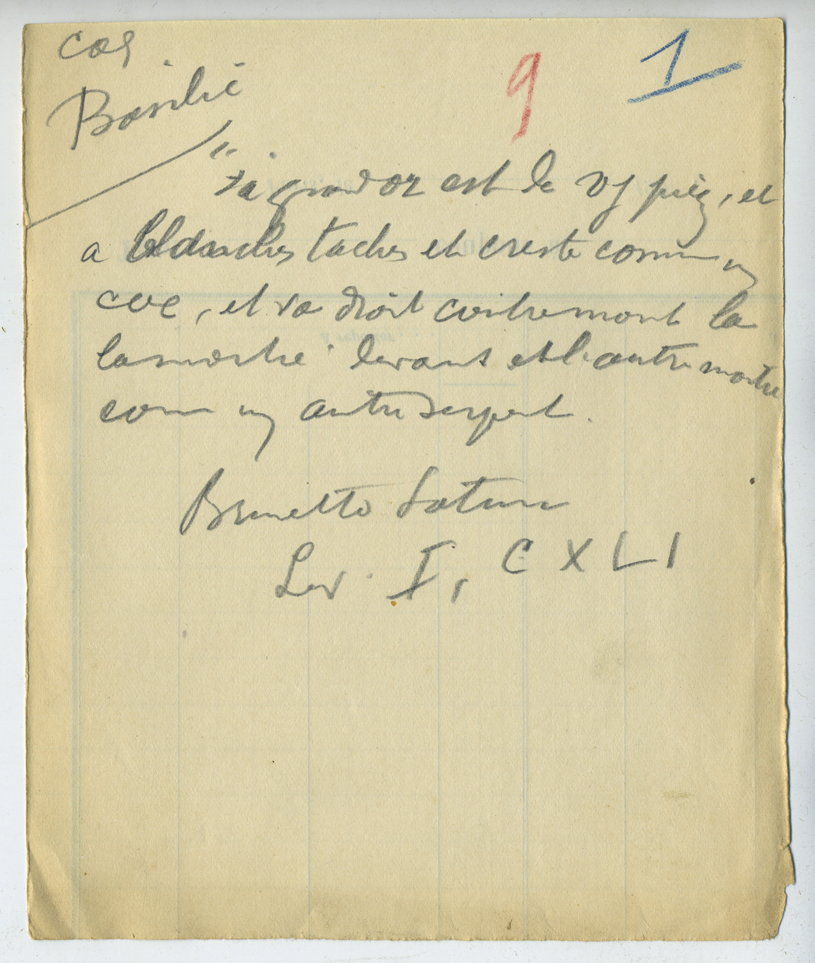 coq
Basilic
9
1
"Sa grandor est de vj piez, et
a blanches taches et creste comme un
coc, et va droit contremont la
la moitié devant et l'autre moitié
com un autre serpent.
Brunetto Latini
Liv. I, CXLI